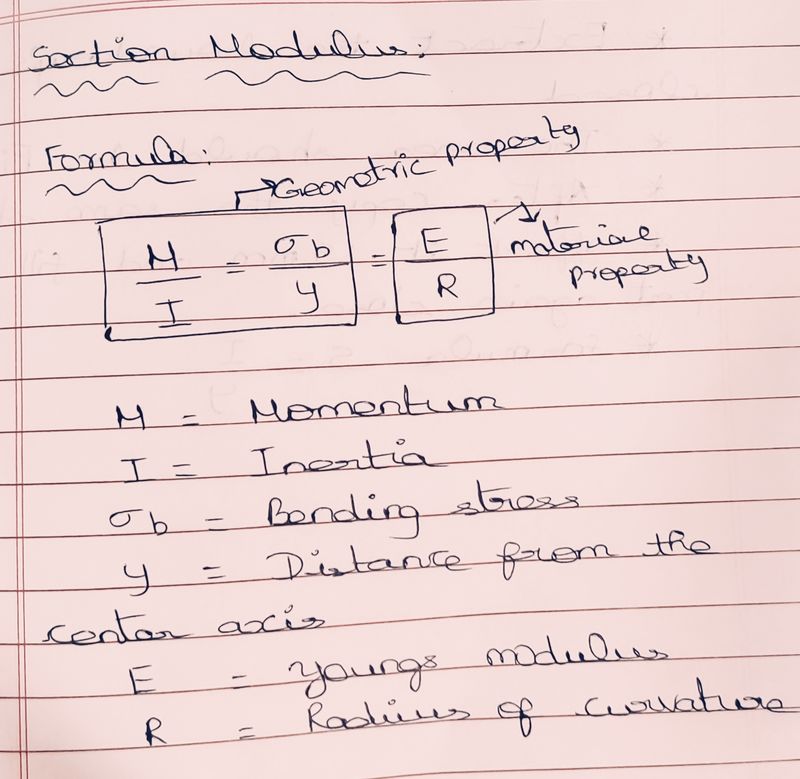 Section Modulus:
Formula:
Geometric property
M/I = σb/y = E/R
material
property
M = Momentum
I = Inertia
σb = Bending stress
y = Distance from the
center axis
E = youngs modulus
R = Radius of curvature